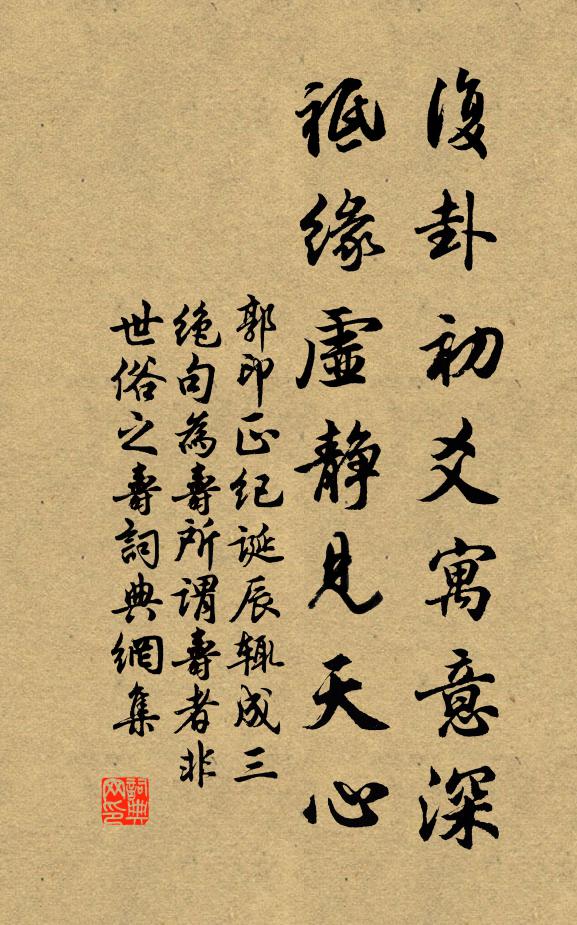 復卦初爻寓意深
祗緣虛靜見天心
郭印正紀誕辰輒成三
絕句為壽所謂壽者非
世俗之壽詞典網集
詞典网印